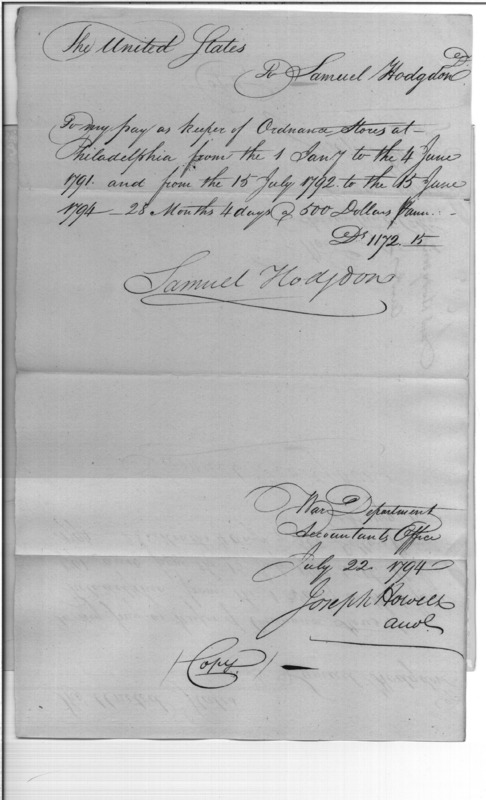 The United States
To Samuel Hodgdon Dr
To my pay as keeper of Ordnance Stores at
Philadelphia from the 1 Jany to the 4 June
1791. and from the 15 July 1792 to the 15 June
1794 — 28 Months 4 days @ 500 Dollars Pann.
Drs 1172. 15
Samuel Hodgdon
War Department
Accountants Office
July 22. 1794
Joseph Howell
(Copy)